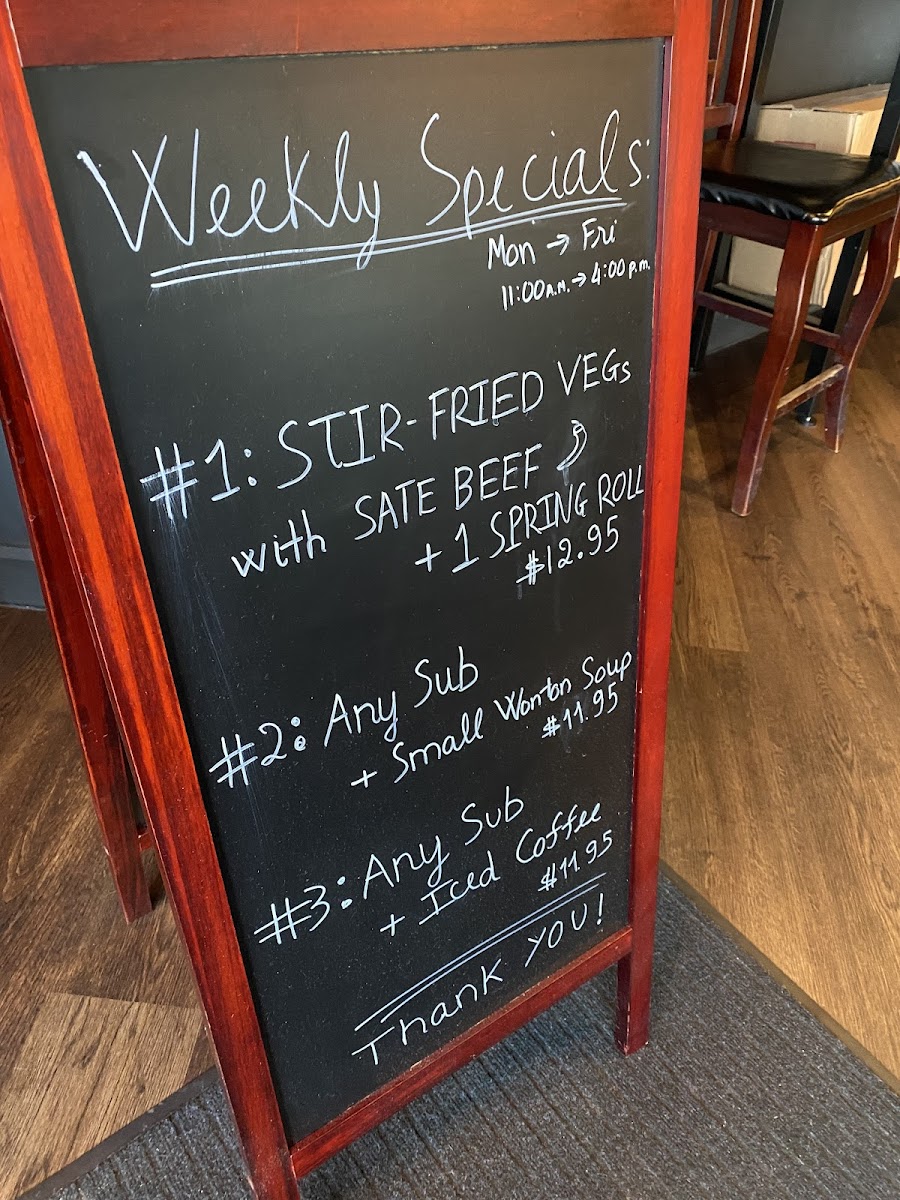 Weekly Specials:
Mon → Fri
11:00 A.M. → 4:00 p.m.
#1: STIR-FRIED VEGs
with SATE BEEF
+ 1 SPRING ROLL
$12.95
#2: Any Sub
+ Small Wonton Soup
$11.95
#3: Any Sub
+ Iced Coffee
$11.95
Thank YOU!